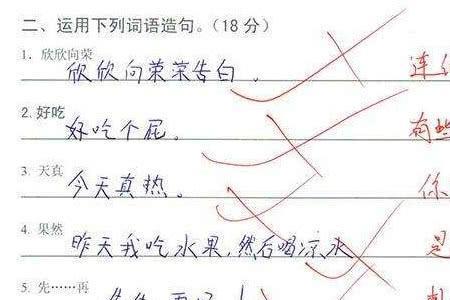 二、运用下列词语造句。(18分)
1. 欣欣向荣
欣欣向荣荣告白。
连
2. 好吃
好吃个屁。
有些
3. 天真
今天真热。
你
4. 果然
昨天我吃水果,然后喝凉水
是
5. 先……再